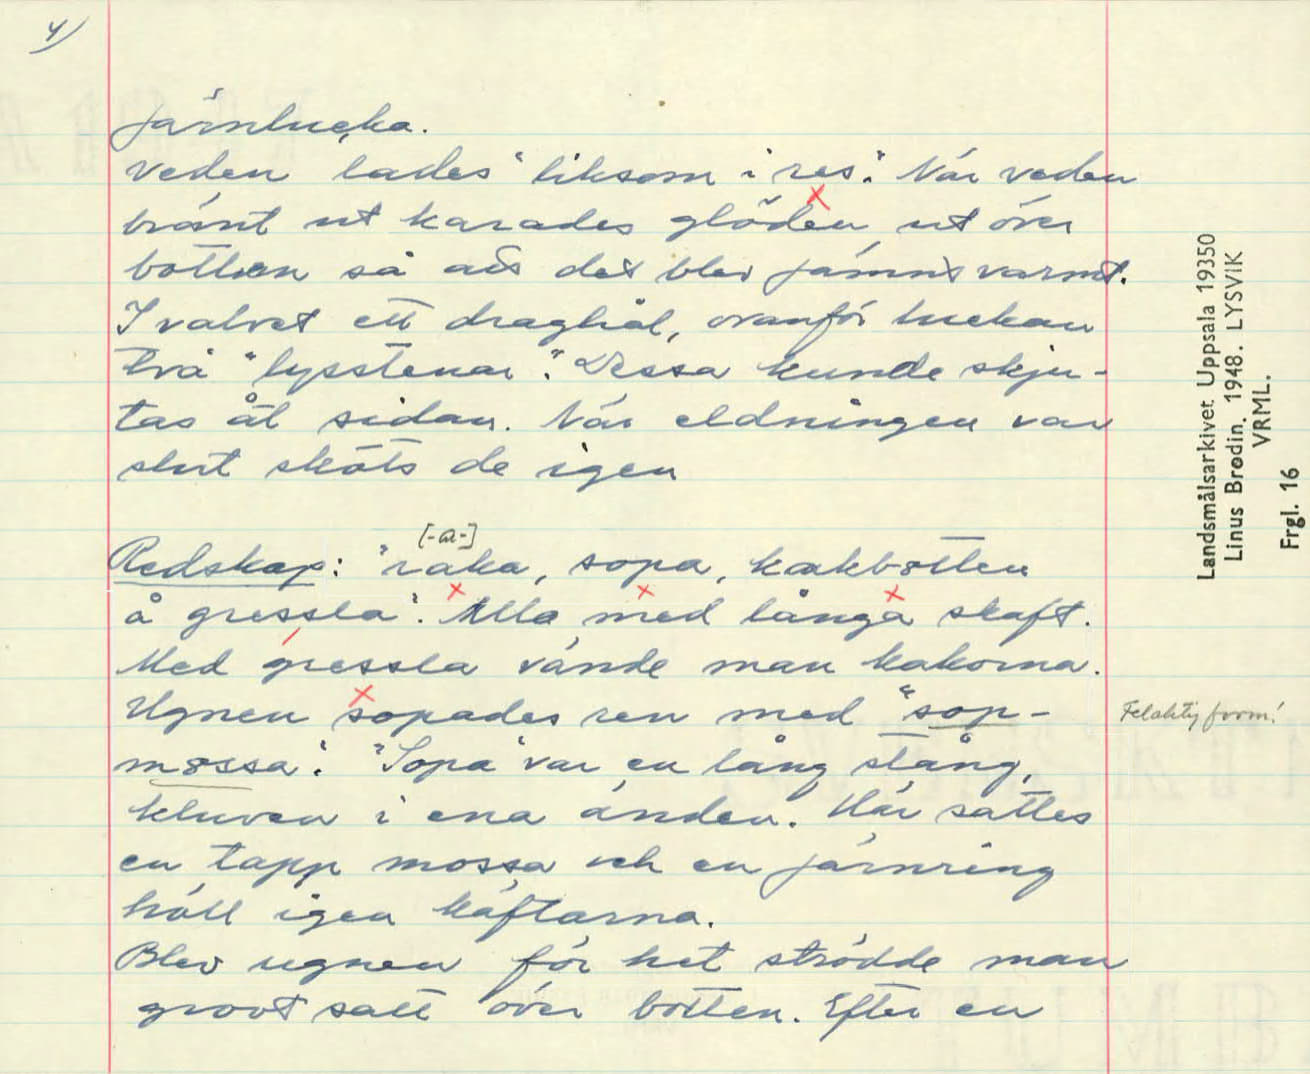 4)
järnlucka.
Veden "lades" liksom i "res". När veden
bränt ut karades glöden ut över
botten så att det blev jämnt varmt.
I valvet ett draghål, ovanför luckan
två "lysstenar". Dessa kunde skju-
tas åt sidan. När eldningen var
slut sköts de igen
[-a-]
Redskap: "raka, sopa, kakbotten
å gressla". Alla med långa skaft.
Med gressla vände man kakorna.
Ugnen sopades ren med "sop-
mossa". "Sopa" var en lång stång,
kluven i ena änden. Här sattes
en tapp mossa och en järnring
höll igen käftarna.
Blev ugnen för het strödde man
grovt salt över botten. Efter en
Felaktig form!
Landsmålsarkivet Uppsala 19350
Linus Brodin. 1948. LYSVIK
VRML.
Frgl. 16